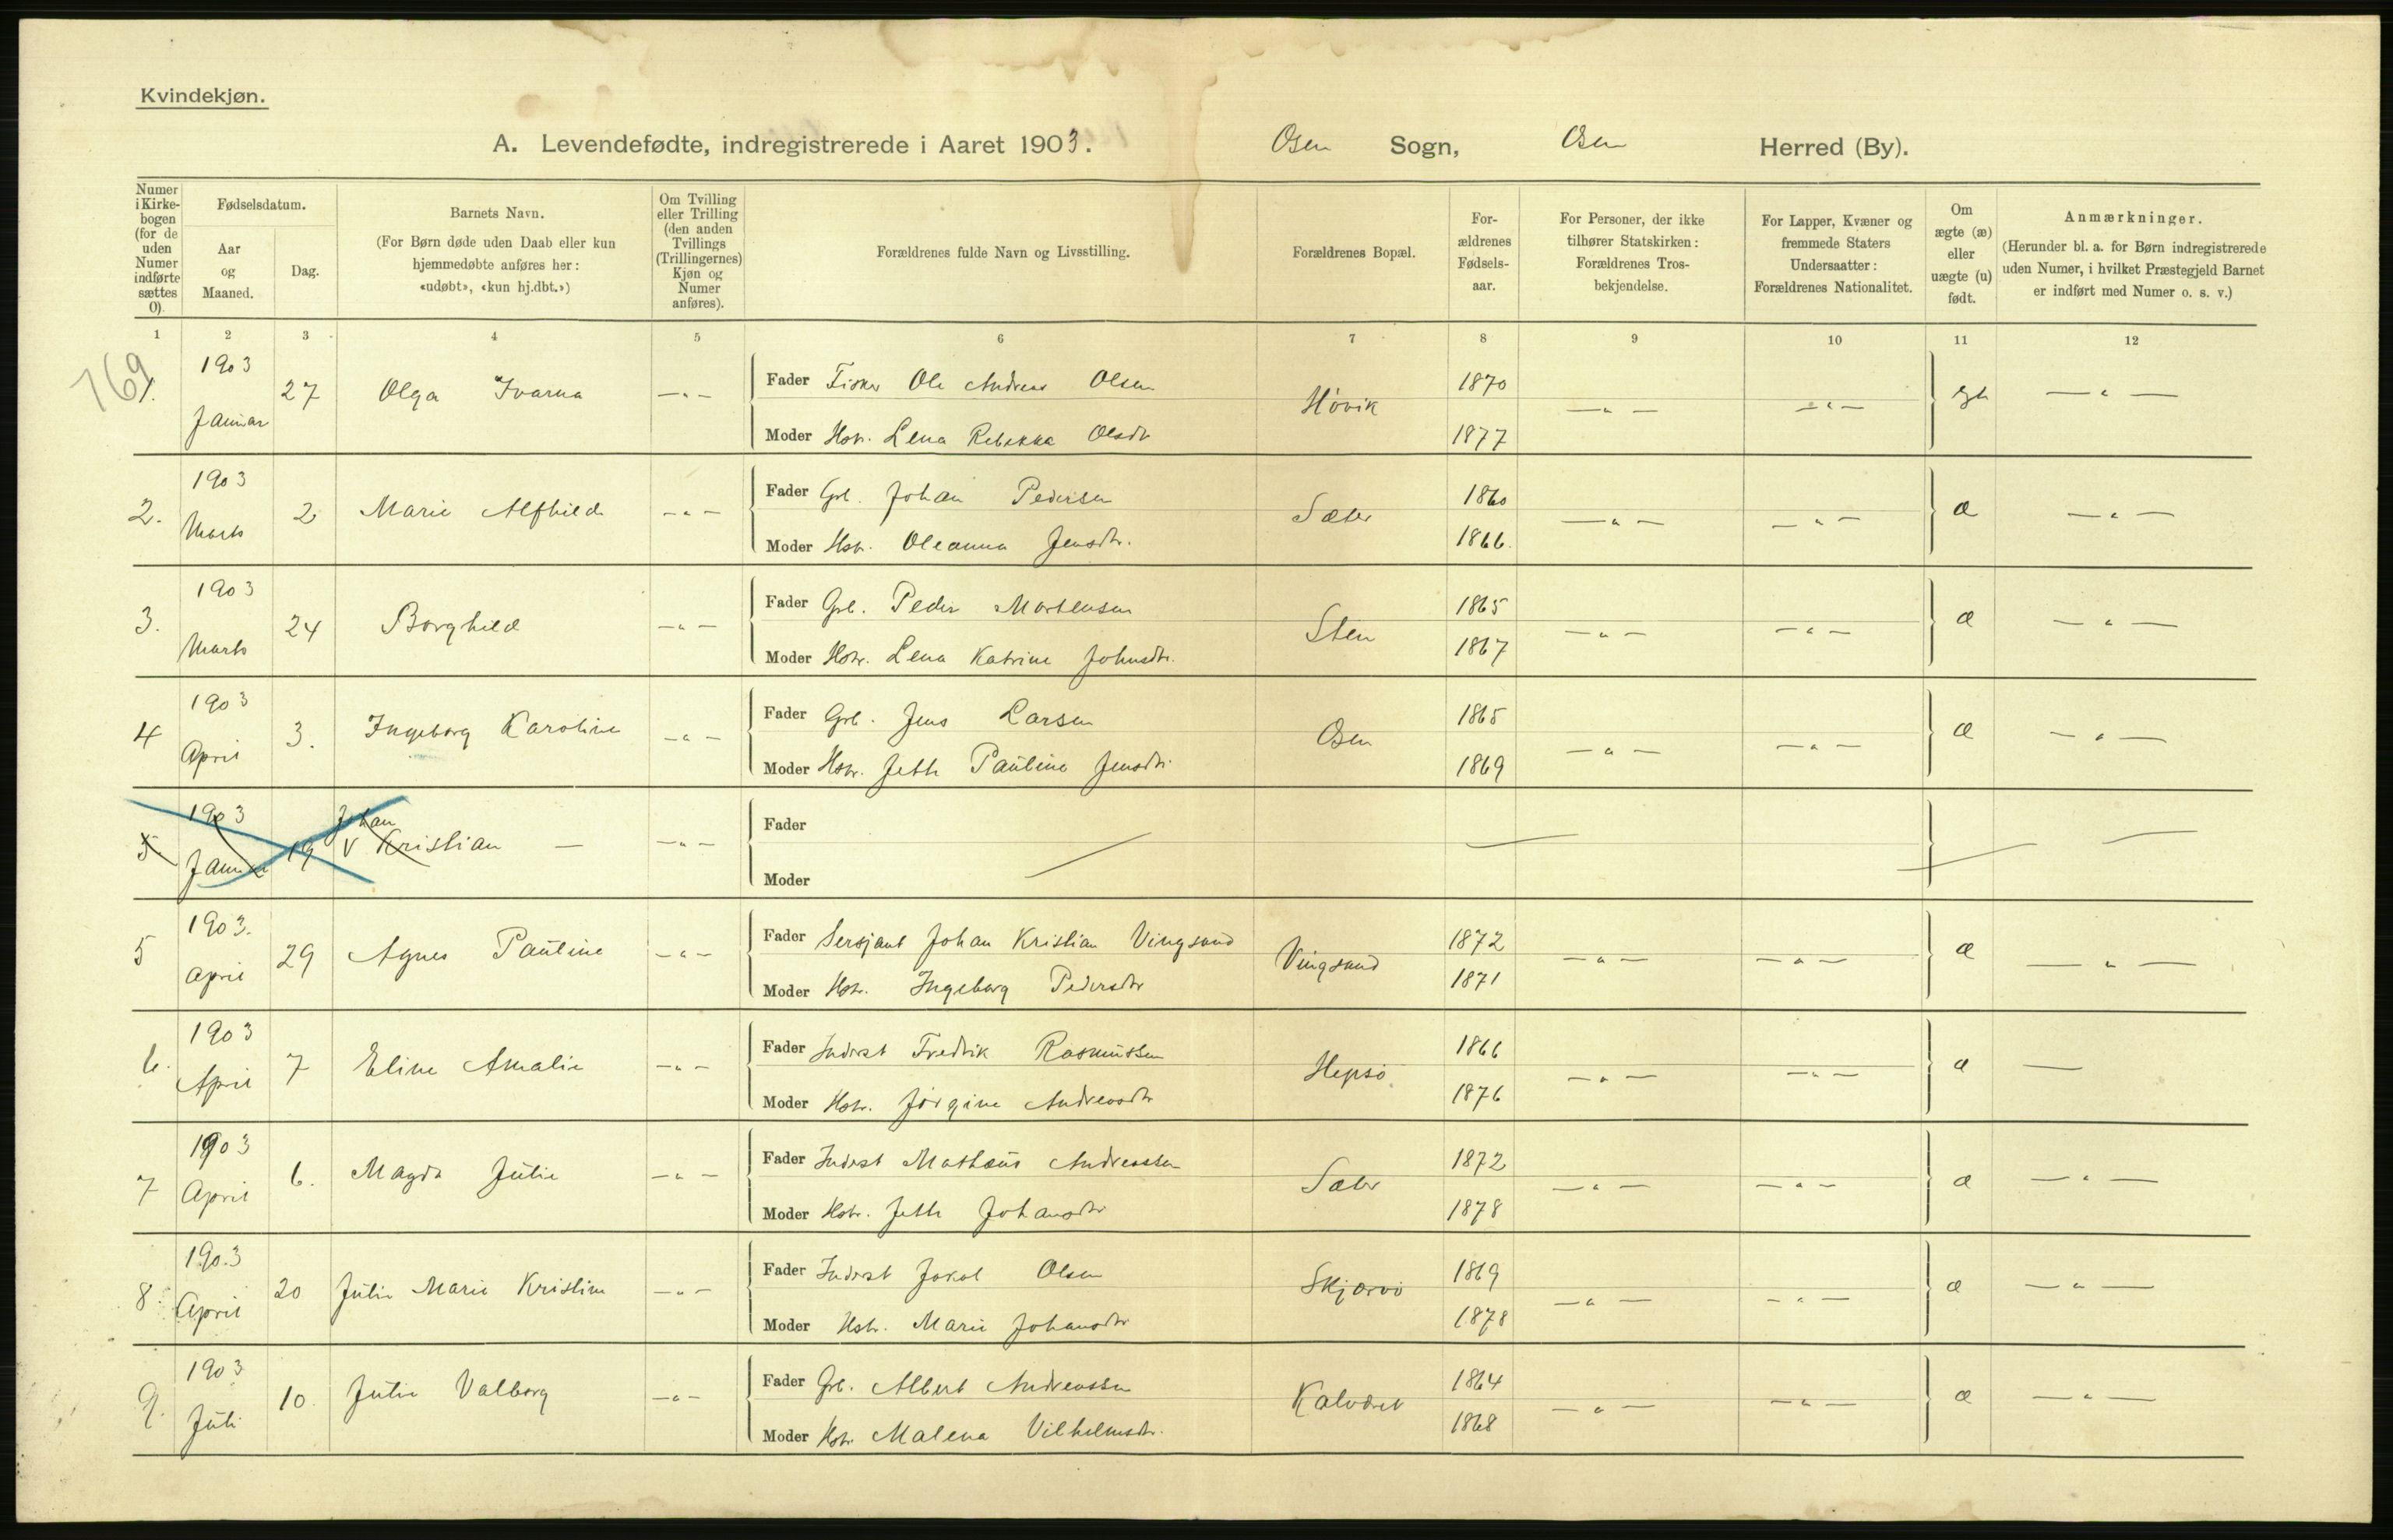 Kvindekjøn.
A. Levendefødte, indregistrerede i Aaret 1903. Osen Sogn, Osen Herred (By).
Numer i Kirkebogen (for de uden Numer indførte sættes 0).
Fødselsdatum.
Aar og Maaned.
Dag.
Barnets Navn.
(For Børn døde uden Daab eller kun hjemmedøbte anføres her: «udøbt», «kun hj.dbt.»)
Om Tvilling eller Trilling (den anden Tvillings (Trillingernes) Kjøn og Numer anføres).
Forældrenes fulde Navn og Livsstilling.
Forældrenes Bopæl.
For-ældrenes Fødsels-aar.
For Personer, der ikke tilhører Statskirken: Forældrenes Tros-bekjendelse.
For Lapper, Kvæner og fremmede Staters Undersaatter: Forældrenes Nationalitet.
Om ægte (æ) eller uægte (u) født.
Anmærkninger.
(Herunder bl. a. for Børn indregistrerede uden Numer, i hvilket Præstegjeld Barnet er indført med Numer o. s. v.)
1 2 3 4 5 6 7 8 9 10 11 12
169
1. 1903 Januar 27 Olga Ivarna — " — Fader Fisker Ole Andreas Olsen Høvik 1870 — " — — " — — " —
Moder Hstr. Lena Rebekka Olsdtr 1877
2. 1903 Marts 2 Marie Alfhild — " — Fader Grb. Johan Pedersen Sæter 1860 — " — — " — æ — " —
Moder Hstr. Oleanna Jensdtr. 1866.
3. 1903 Marts 24 Borghild — " — Fader Grb. Peder Mortensen Sten 1865 — " — — " — æ — " —
Moder Hstr. Lena Katrine Johnsdtr. 1867
4 1903 April 3. Ingeborg Karoline — " — Fader Grb. Jens Larsen Osen 1865 — " — — " — æ — " —
Moder Hstr. Jette Pauline Jensdtr. 1869
5 1903 Januar 19 Johan Kristian — — " — Fader
Moder
5 1903. April 29 Agnes Pauline — " — Fader Sersjant Johan Kristian Vingsand Vingsand 1872 — " — — " — æ — " —
Moder Hstr. Ingeborg Pedersdtr 1871
6. 1903 April 7 Eline Amalie — " — Fader Inderst Fredrik Rasmussen Hepsø 1866 — " — — " — æ —
Moder Hstr. Jørgine Andreasdtr 1876
7 1903 April 6. Magda Julie — " — Fader Inderst Mathæus Andreassen Sæter 1872 — " — — " — æ — " —
Moder Hstr. Jette Johansdtr 1878
8. 1903 April 20 Julie Marie Kristine — " — Fader Inderst Jakob Olsen Skjærvø 1869 — " — — " — æ — " —
Moder Hstr. Marie Johansdtr 1878
9. 1903 Juli 10. Julie Valborg — " — Fader Grb. Albert Andreassen 1864 — " — — " — æ — " —
Moder Hstr. Malena Vilhelmsdtr. 1868